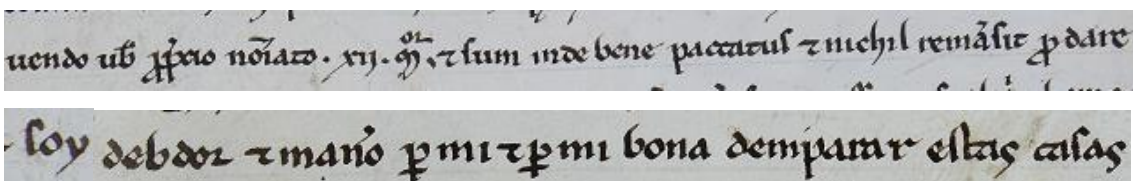 uendo uob̃ p̃p̃cio noĩato. xij. m̃or, ⁊ sum inde bene paccatus ⁊ nichil remãsit ꝓ dare
soy debdor ⁊ mano ꝑ mi ⁊ ꝑ mi bona demparar estas casas